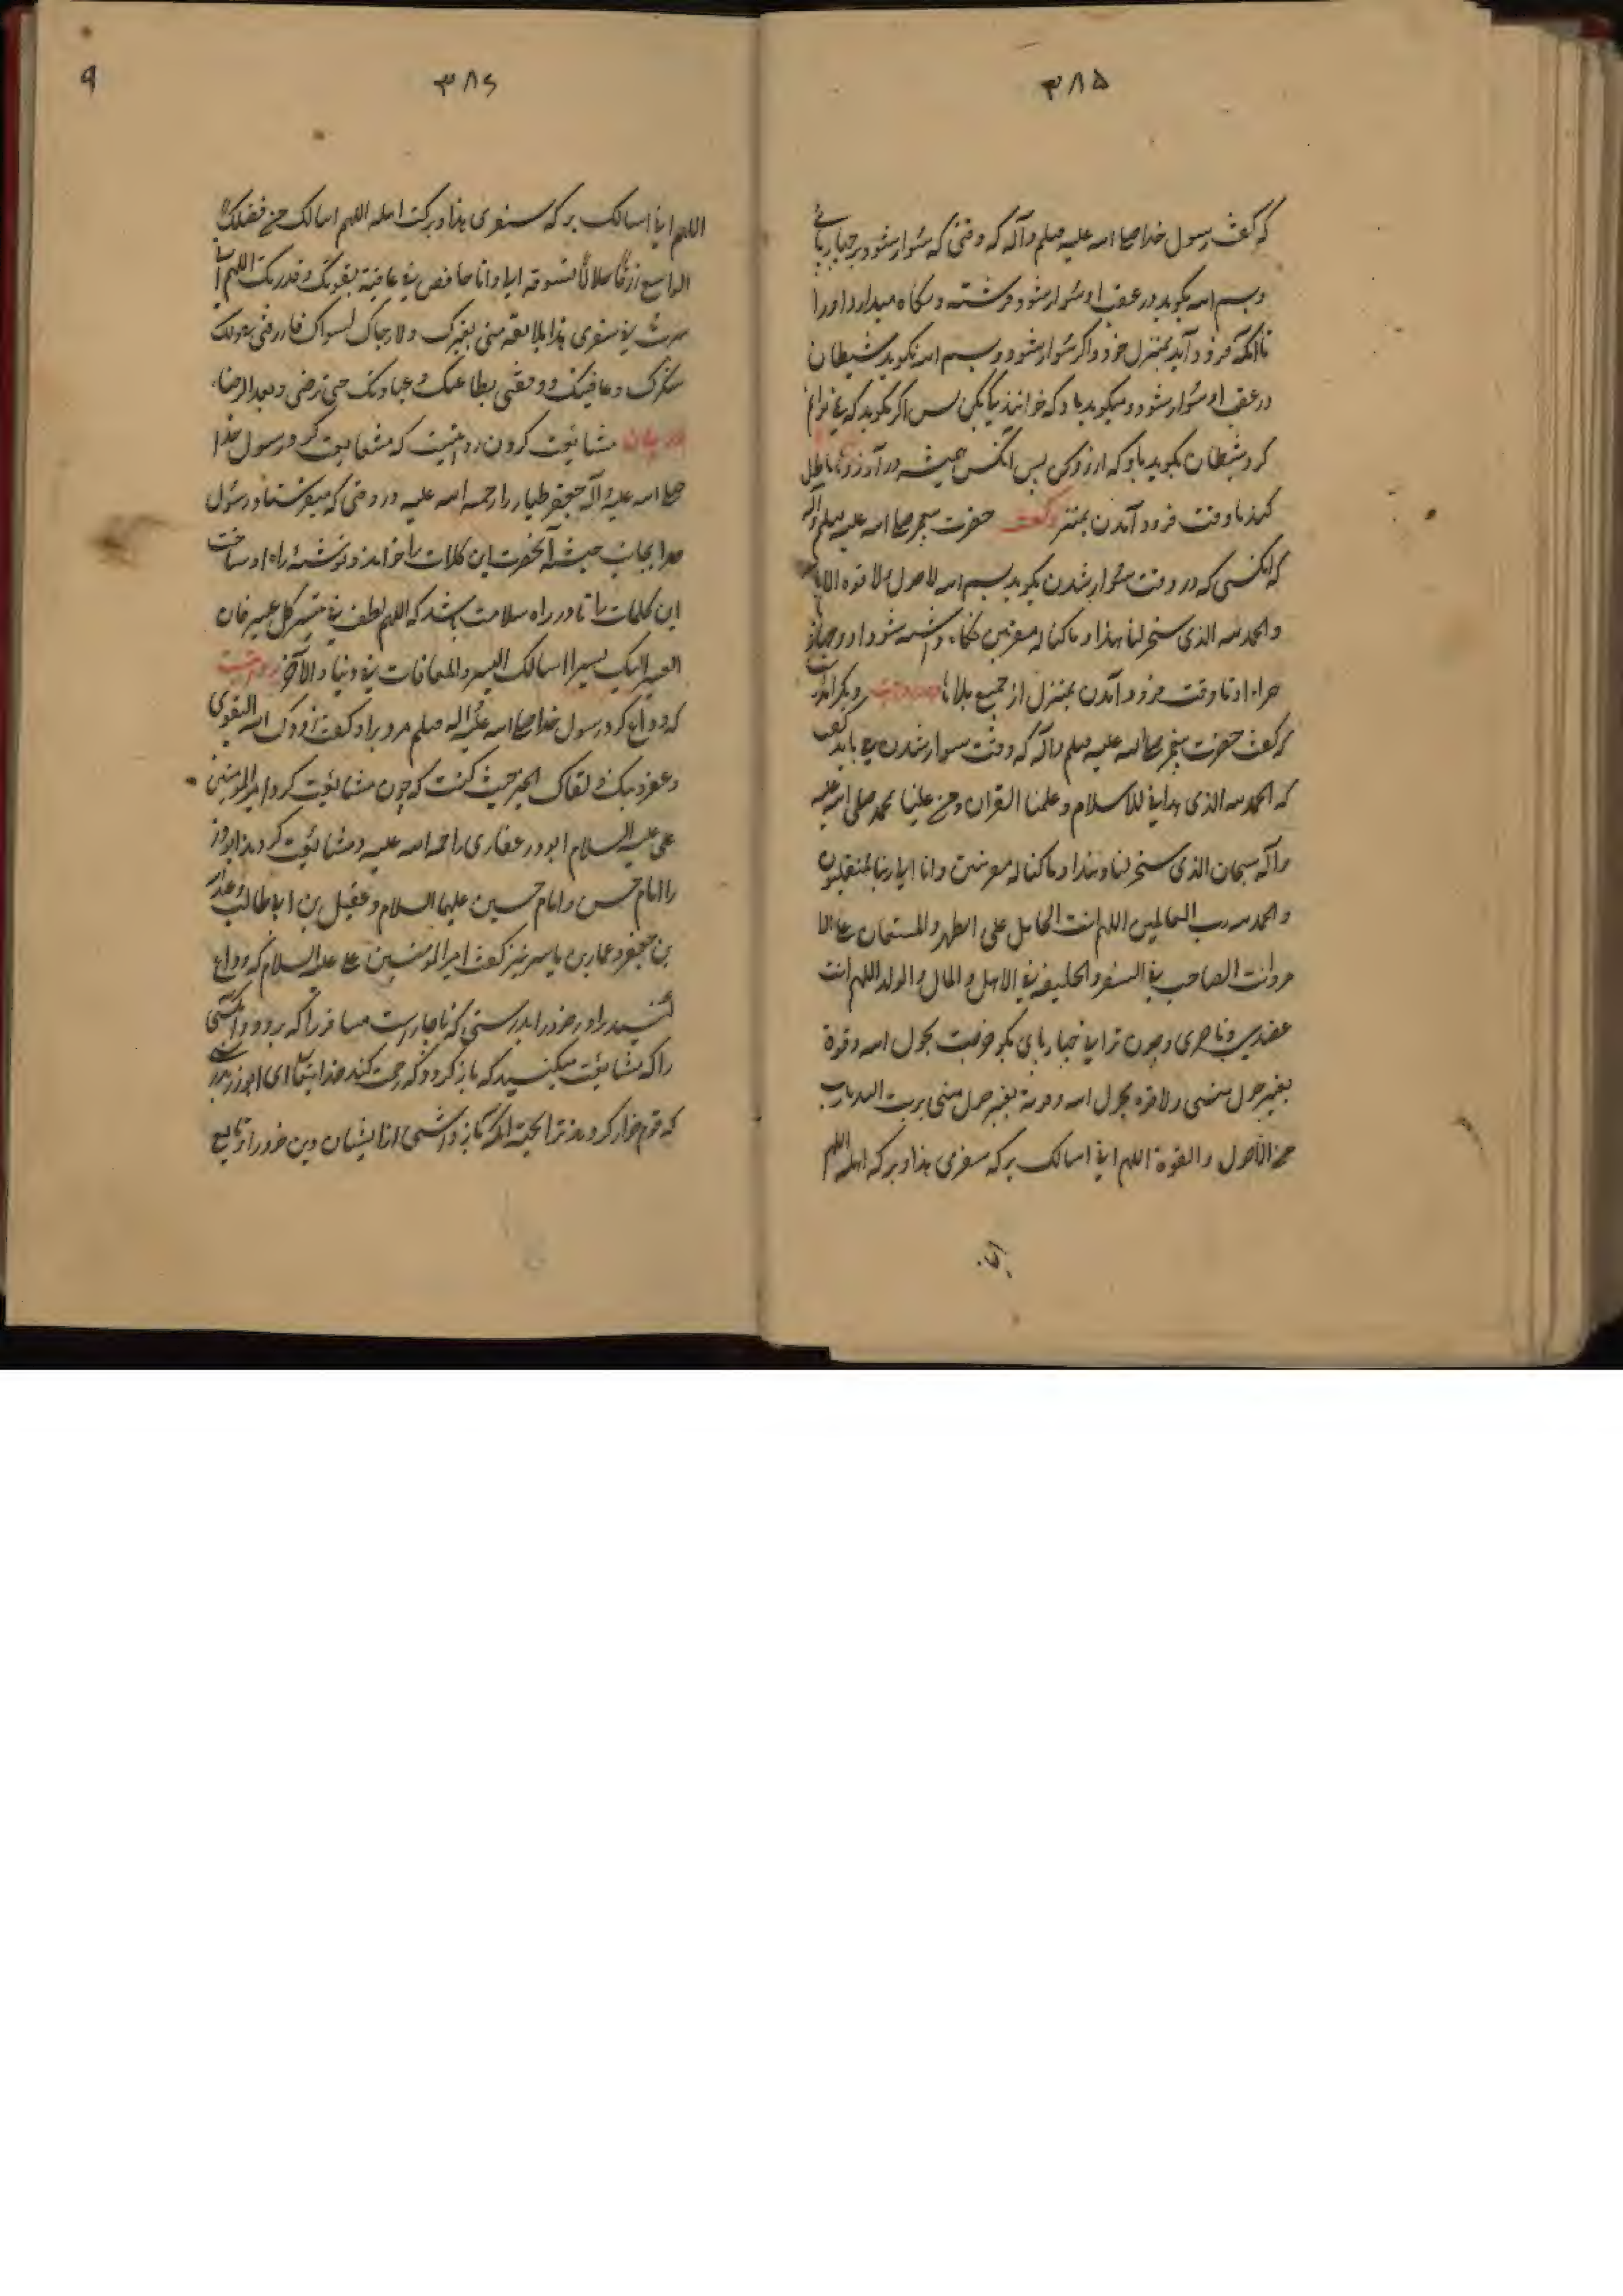 ۳۸۵
که گفت رسول خدا صلی الله علیه وسلم وآله که وقتی که سوار شود بر چهارپائی
و بسم الله بگوید در عقب او سوار شود فرشته و نگاه میدارد او را
تا آنکه فرود آید بمنزل خود و اگر سوار شود و بسم الله نگوید شیطان
در عقب او سوار شود و میگوید باو که خوانندگی بکن پس اگر بگوید که نمیخوانم
کرد شیطان بگوید باو که آرزو کن پس آنکس همیشه در آرزوهای باطل
کند تا وقت فرود آمدن بمنزل و گفت حضرت پیغمبر صلی الله علیه وسلم وآله
که آنکسی که در وقت سوار شدن بگوید بسم الله لاحول ولا قوة الا بالله
والحمد لله الذی سخر لنا هذا وما کنا له مقرنین نگاه داشته شود او و چهارپای
مراد او تا وقت فرود آمدن بمنزل از جمیع بلاها و در روایت دیگر است
که گفت حضرت پیغمبر صلی الله علیه وسلم وآله که وقت سوار شدن می باید گفت
که الحمد لله الذی هدانی للاسلام وعلمنا القران ومن علینا بمحمد صلی الله علیه
وآله سبحان الذی سخر لنا هذا وما کنا له مقرنین وانا الی ربنا لمنقلبون
والحمد لله رب العالمین اللهم انت الحامل علی الظهر والمستعان علی الا
مر وانت الصاحب فی السفر والخلیفة فی الاهل والمال والولد اللهم انت
عضدی وناصری وچون ترا نی چهارپای بگو خرجت بحول الله وقوة
بغیر حول منی ولا قوة بحول الله وقوته بغیر حول منی بریت الیک یارب
من الحول والقوة اللهم انی اسالک برکة سفری هذا وبرکة اهله اللهم
۳۸۶
۹
اللهم انی اسالک برکة سفری هذا وبرکت اهله اللهم اسالک من فضلک
الواسع رزقا حلالا تسوقه الی وانا خافض فی عافیة بقوتک وقدرتک اللهم انی
سرت فی سفری هذا بلا ثقة منی بغیرک ولا رجاک لسواک فارزقنی بعونک
شکرک وعافیتک ووفقنی بطاعتک وعبادتک حتی ترضی وبعد الرضا
در بیان مشایعت کردن روایتست که مشایعت کرد رسول خدا
صلی الله علیه وآله جعفر طیار را رحمه الله علیه در وقتی که میفرستاد رسول
خدا بجانب حبشه آنحضرت این کلمات را خواند و توشهٔ راه او ساخت
این کلمات را تا در راه سلامت باشد که اللهم لطف فی تیسر کل عسیر فان
العسیر الیک یسیر اسالک الیسر والمعافات فی دنیا والآخر روایتست
که وداع کرد رسول خدا صلی الله علیه وآله وسلم مردیرا و گفت زودک الله التقوی
وغفر ذنبک ولقاک الخیر حیث کنت که چون مشایعت کرد امیر المومنین
علی علیه السلام ابوذر غفاری را رحمه الله علیه و مشایعت کردند ابوذر
را امام حسن و امام حسین علیهما السلام و عقیل بن ابیطالب و عبدالله
بن جعفر و عمار بن یاسر نیز گفت امیر المومنین علی علیه السلام که وداع
کنید برادر خود را بدرستی که ناچار است مسافر را که برود و آنکسی
را که مشایعت میکنید که باز گردد که رحمت کند خدایتعالی ای ابوذر بدرستی
که قوم خوار کردند ترا بجهة آنکه باز داشتی از ایشان دین خود را و مانع